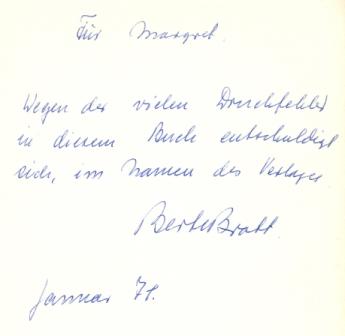 Für Margret.
Wegen der vielen Druckfehler
in diesem Buch entschuldigt
sich, im Namen des Verlages
Berte Bratt.
Januar 71.